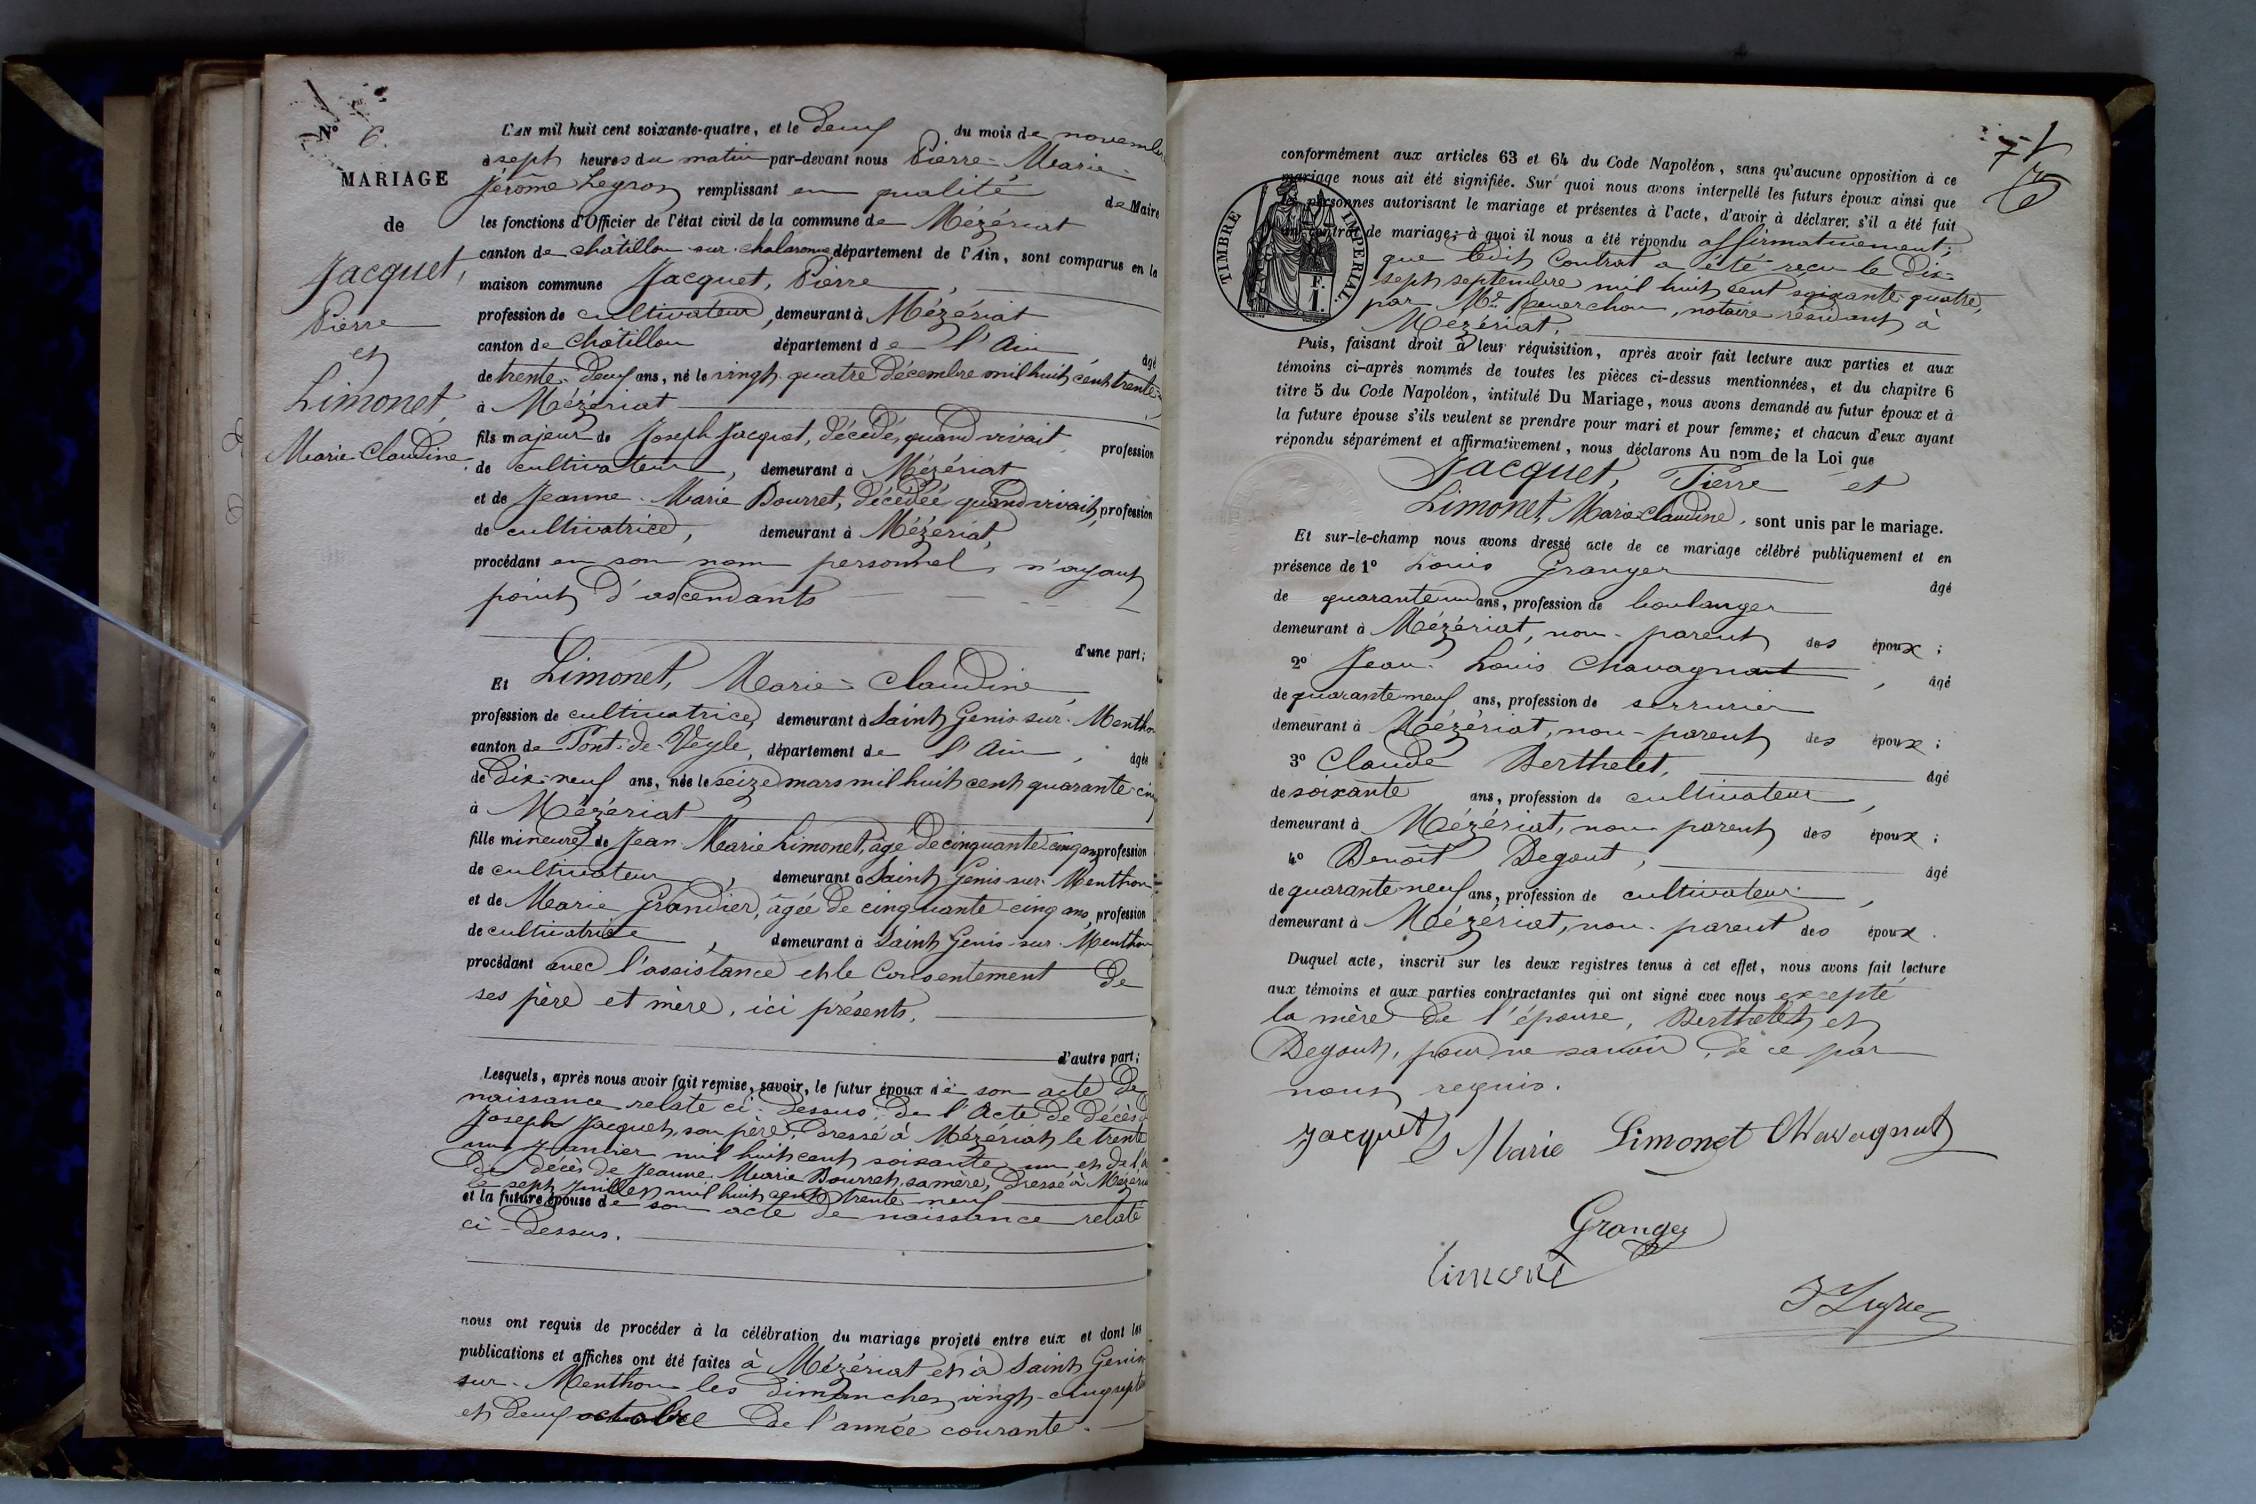 N° 6.
MARIAGE
de
Jacquet,
Pierre
et
Limonet,
Marie Claudine.
L'AN mil huit cent soixante-quatre, et le deux du mois de novembre
à sept heures du matin par-devant nous Pierre-Marie-
Jérôme remplissant en qualité de Maire
les fonctions d'Officier de l'état civil de la commune de Mézériat
canton de châtillon-sur-chalaronne département de l'Ain, sont comparus en la
maison commune Jacquet, Pierre,
profession de cultivateur, demeurant à Mézériat
canton de Châtillon département de l'Ain âgé
de trente-deux ans, né le vingt-quatre décembre mil huit cent trente-
à Mézériat
fils majeur de Joseph Jacquet, décédé, quand vivait, profession
de cultivateur, demeurant à Mézériat
et de Jeanne-Marie Bourret, décédée quand vivait, profession
de cultivatrice, demeurant à Mézériat,
procédant en son nom personnel, n'ayant
point d'ascendants
d'une part;
Et Limonet, Marie-Claudine,
profession de cultivatrice, demeurant à Saint Genis-sur-Menthon
canton de Pont-de-Veyle, département de l'Ain, âgée
de dix-neuf ans, née le seize mars mil huit cent quarante-cinq
à Mézériat
fille mineure de Jean Marie Limonet, âgé de cinquante-cinq ans, profession
de cultivateur, demeurant à Saint Genis-sur-Menthon
et de Marie Grandier, âgée de cinquante-cinq ans, profession
de cultivatrice, demeurant à Saint Genis-sur-Menthon
procédant avec l'assistance et le consentement de
ses père et mère, ici présents.
d'autre part;
Lesquels, après nous avoir fait remise, savoir, le futur époux de son acte de
naissance relaté ci-dessus; de l'Acte de décès de
Joseph Jacquet, son père, dressé à Mézériat le trente
un Janvier mil huit cent soixante-un et de l'
de décès de Jeanne-Marie Bourret, sa mère, dressé à Mézériat
le sept Juillet mil huit cent trente-neuf
et la future épouse de son acte de naissance relaté
ci-dessus.
nous ont requis de procéder à la célébration du mariage projeté entre eux et dont les
publications et affiches ont été faites à Mézériat et à Saint Genis
sur-Menthon les dimanches vingt-cinq septembre
et deux octobre de l'année courante.
conformément aux articles 63 et 64 du Code Napoléon, sans qu'aucune opposition à ce
mariage nous ait été signifiée. Sur quoi nous avons interpellé les futurs époux ainsi que
personnes autorisant le mariage et présentes à l'acte, d'avoir à déclarer s'il a été fait
un contrat de mariage; à quoi il nous a été répondu affirmativement;
que ledit Contrat a été reçu le dix-
sept septembre mil huit cent soixante quatre,
par Me notaire résidant à
Mézériat.
TIMBRE IMPÉRIAL.
1 F.
Puis, faisant droit à leur réquisition, après avoir fait lecture aux parties et aux
témoins ci-après nommés de toutes les pièces ci-dessus mentionnées, et du chapitre 6
titre 5 du Code Napoléon, intitulé Du Mariage, nous avons demandé au futur époux et à
la future épouse s'ils veulent se prendre pour mari et pour femme; et chacun d'eux ayant
répondu séparément et affirmativement, nous déclarons Au nom de la Loi que
Jacquet, Pierre et
Limonet, Marie-Claudine, sont unis par le mariage.
Et sur-le-champ nous avons dressé acte de ce mariage célébré publiquement et en
présence de 1° Louis Granger âgé
de quarante un ans, profession de boulanger
demeurant à Mézériat, non-parent des époux;
2° Jean-Louis Chavagnat, âgé
de quarante-neuf ans, profession de serrurier
demeurant à Mézériat, non-parent des époux;
3° Claude Berthelet, âgé
de soixante ans, profession de cultivateur,
demeurant à Mézériat, non-parent des époux;
4° Benoît Degout, âgé
de quarante-neuf ans, profession de cultivateur,
demeurant à Mézériat, non-parent des époux.
Duquel acte, inscrit sur les deux registres tenus à cet effet, nous avons fait lecture
aux témoins et aux parties contractantes qui ont signé avec nous excepté
la mère de l'épouse, Berthelet et
Degout, pour ne savoir, de ce par
nous requis.
Jacquet Marie Limonet Chavagnat
Granger
Limonet